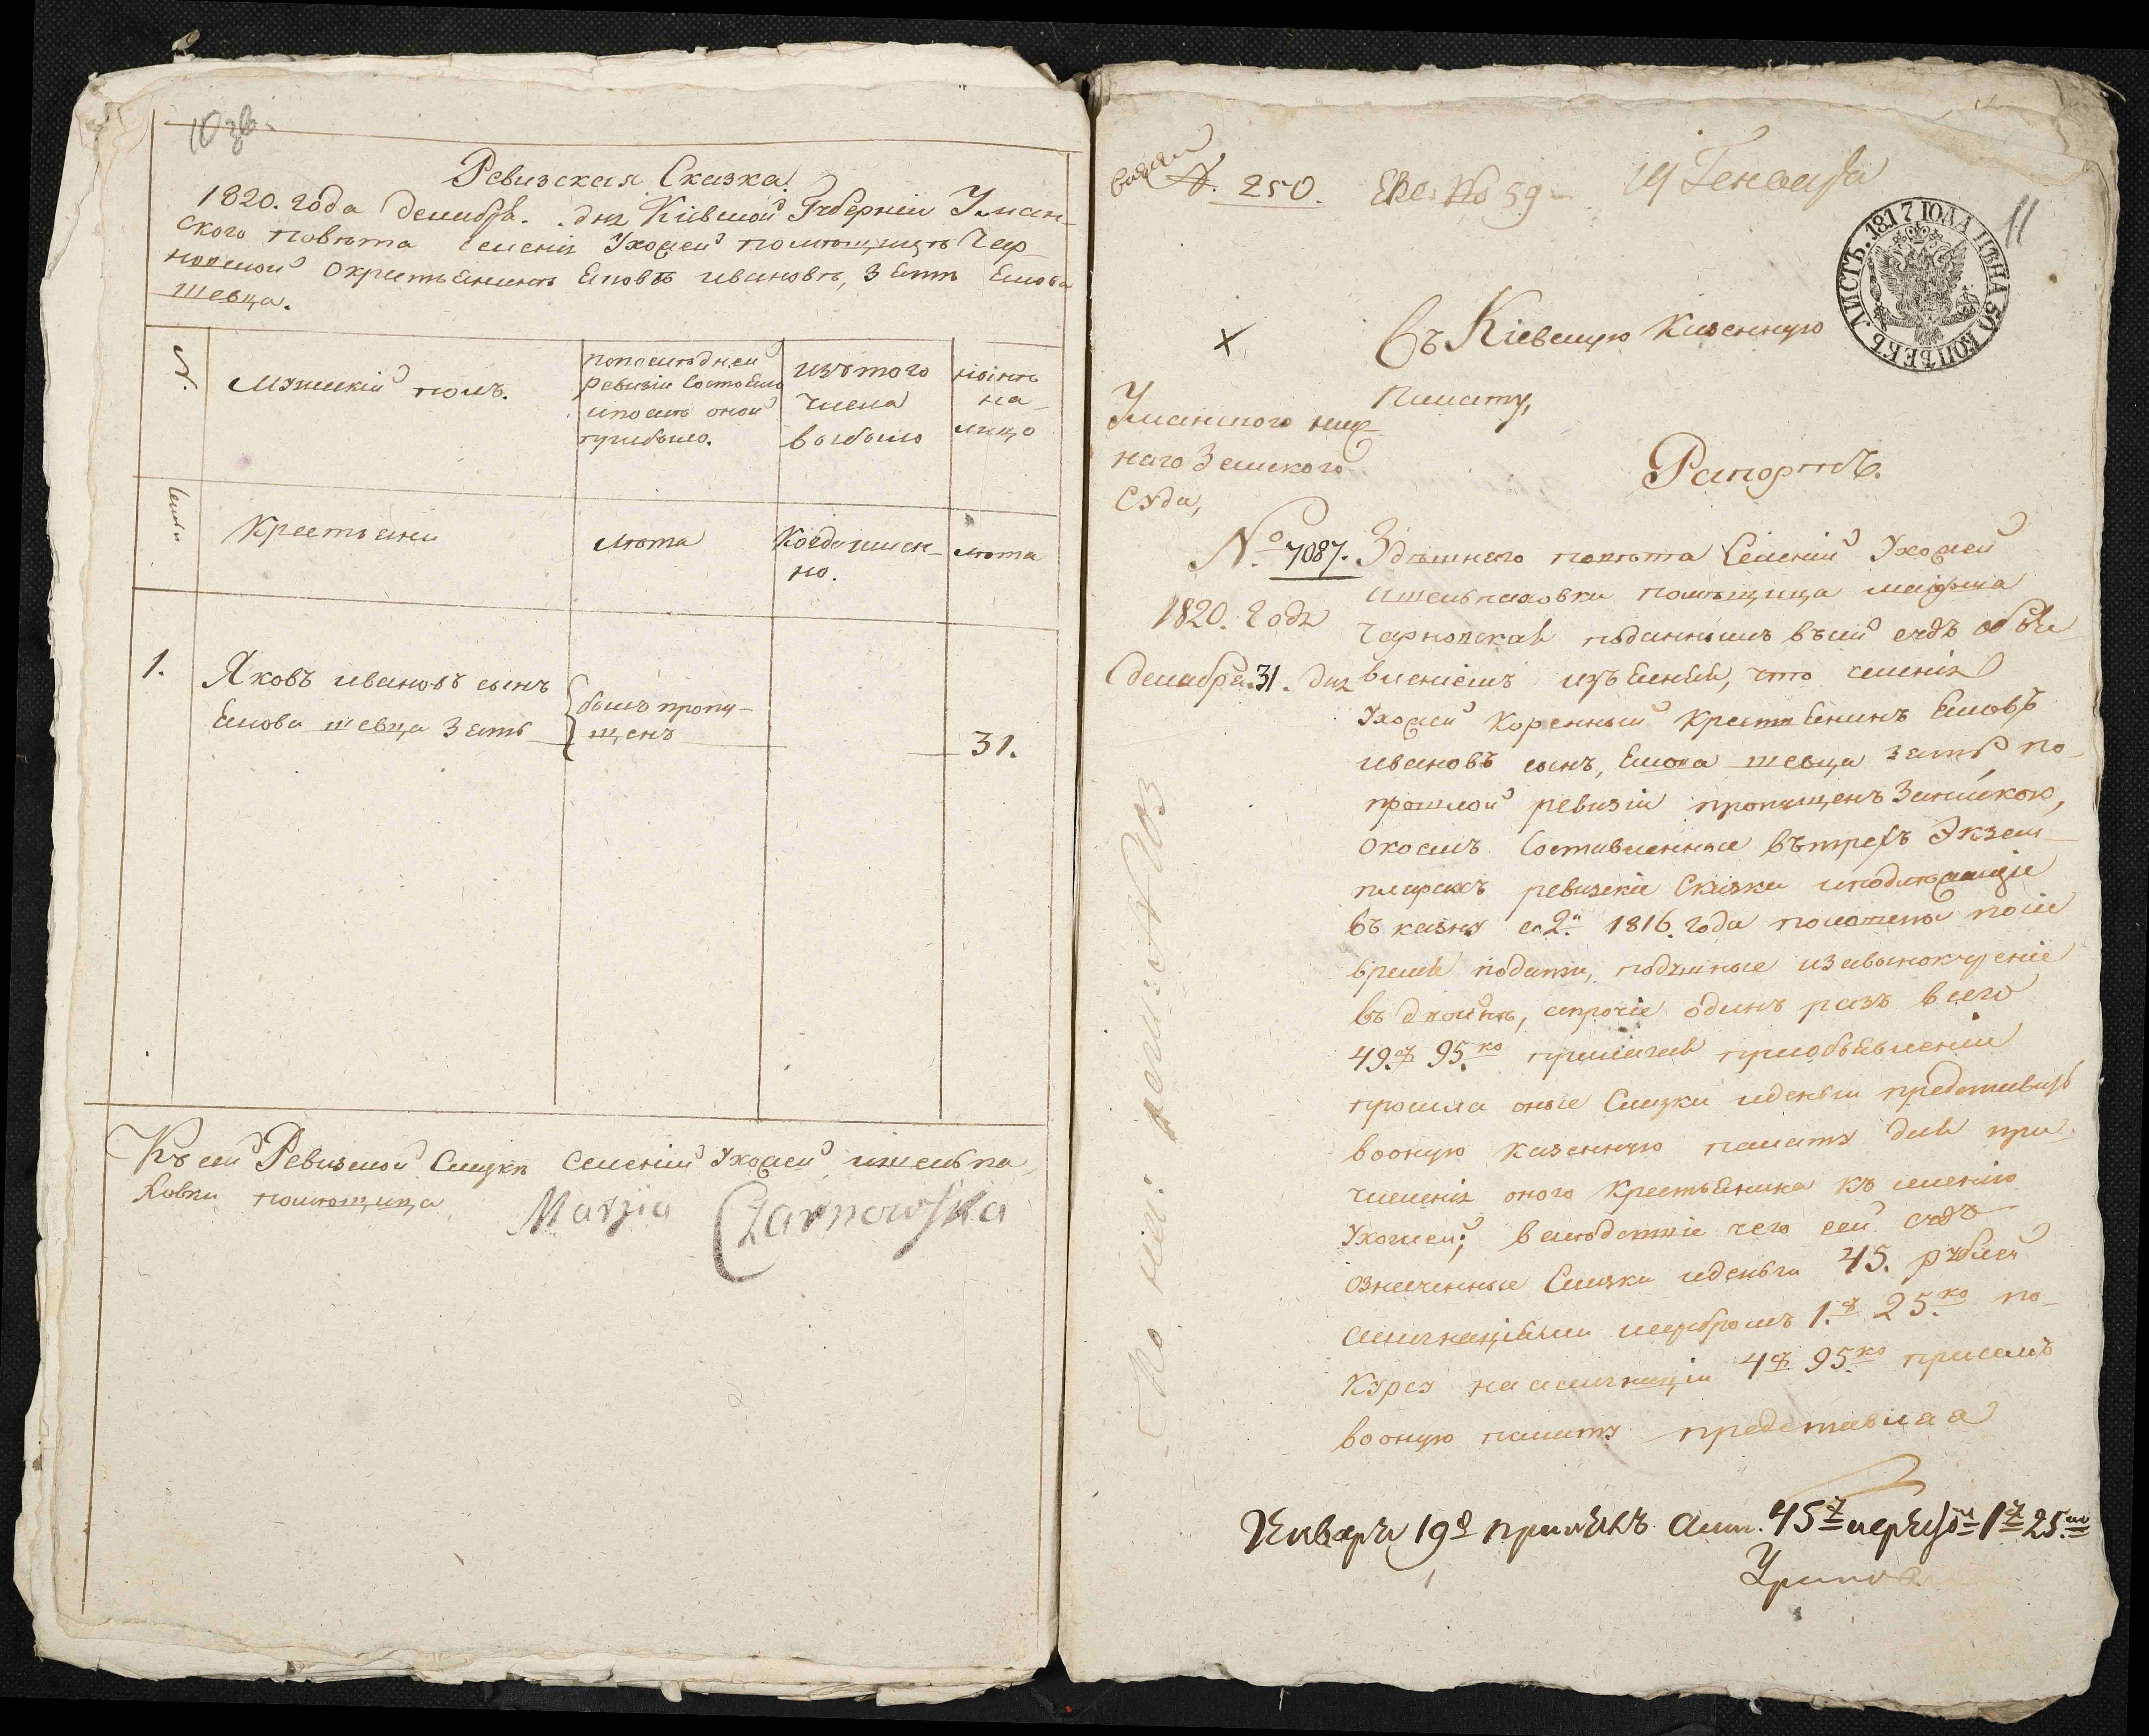 10 зв
Ревизская Сказка.
1820. года декабря. дня Кіевской Губерніи Уман-
ского повѣта селенія Ухожей помѣщицы Чар-
новской окрестьянинѣ Яковѣ ивановѣ, Зятѣ Якова
шевца.
№.
Мужескій полъ.
попоследней
ревизіи Состояло
ипослѣ оной
прибыло.
изътого
числа
выбыло
нынѣ
на-
лицо
Семьи
Крестьяни
лѣта
Когдаимен-
но.
лѣта
1.
Яковъ ивановъ сынъ
Якова шевца Зять
былъ пропу-
щенъ
31.
Къ сей Ревизской Сказки селеній Ухожей ишельпа
ховки помѣщица
Maryia Czarnowska
№. 250. 59 19 Генваря
11
ЛИСТЪ. 1817 ГОДА ЦѢНА 50 КОПѢЕКЪ.
Въ Кіевскую Казенную
Палату,
Уманского ниж-
наго Земского
Суда,
Рапортъ.
№ 7087.
1820. Года
Декабря 31. дня
Здѣшнего повѣта Селеній Ухожей
ишельпаховки помѣщица марыя
Чарновская поданнымъ въсей судъ объя
вленіемъ изъясняя, что селенія
Ухожей Коренный Крестьянинъ Яковъ
ивановъ сынъ, Якова шевца зять по-
прошлой ревизіи пропущенъ Запискою,
окоемъ Составленные вътрехъ Экзем
плярахъ ревизскіе Сказки иподлежащіе
въ казну со 2й 1816. года половины посіе
время подати, подушные изавинокуреніе
въ двойнѣ, апрочіе одинъ разъ всего
49.р 95.ко прилагая приобъявленіи
просила оные Сказки иденьги представить
вооную казенную палату для при
численія оного Крестьянина къ имению
Ухожей; вслѣдствіе чего сей судъ
означенные Сказки иденьги 45. рублей
ассигнаціями исеребромъ 1.р 25.ко по-
курсу наассигнаціи 4р 95.ко присемъ
вооную палату представляя
Января 19 принялъ асси. 45 исеребро 1 25